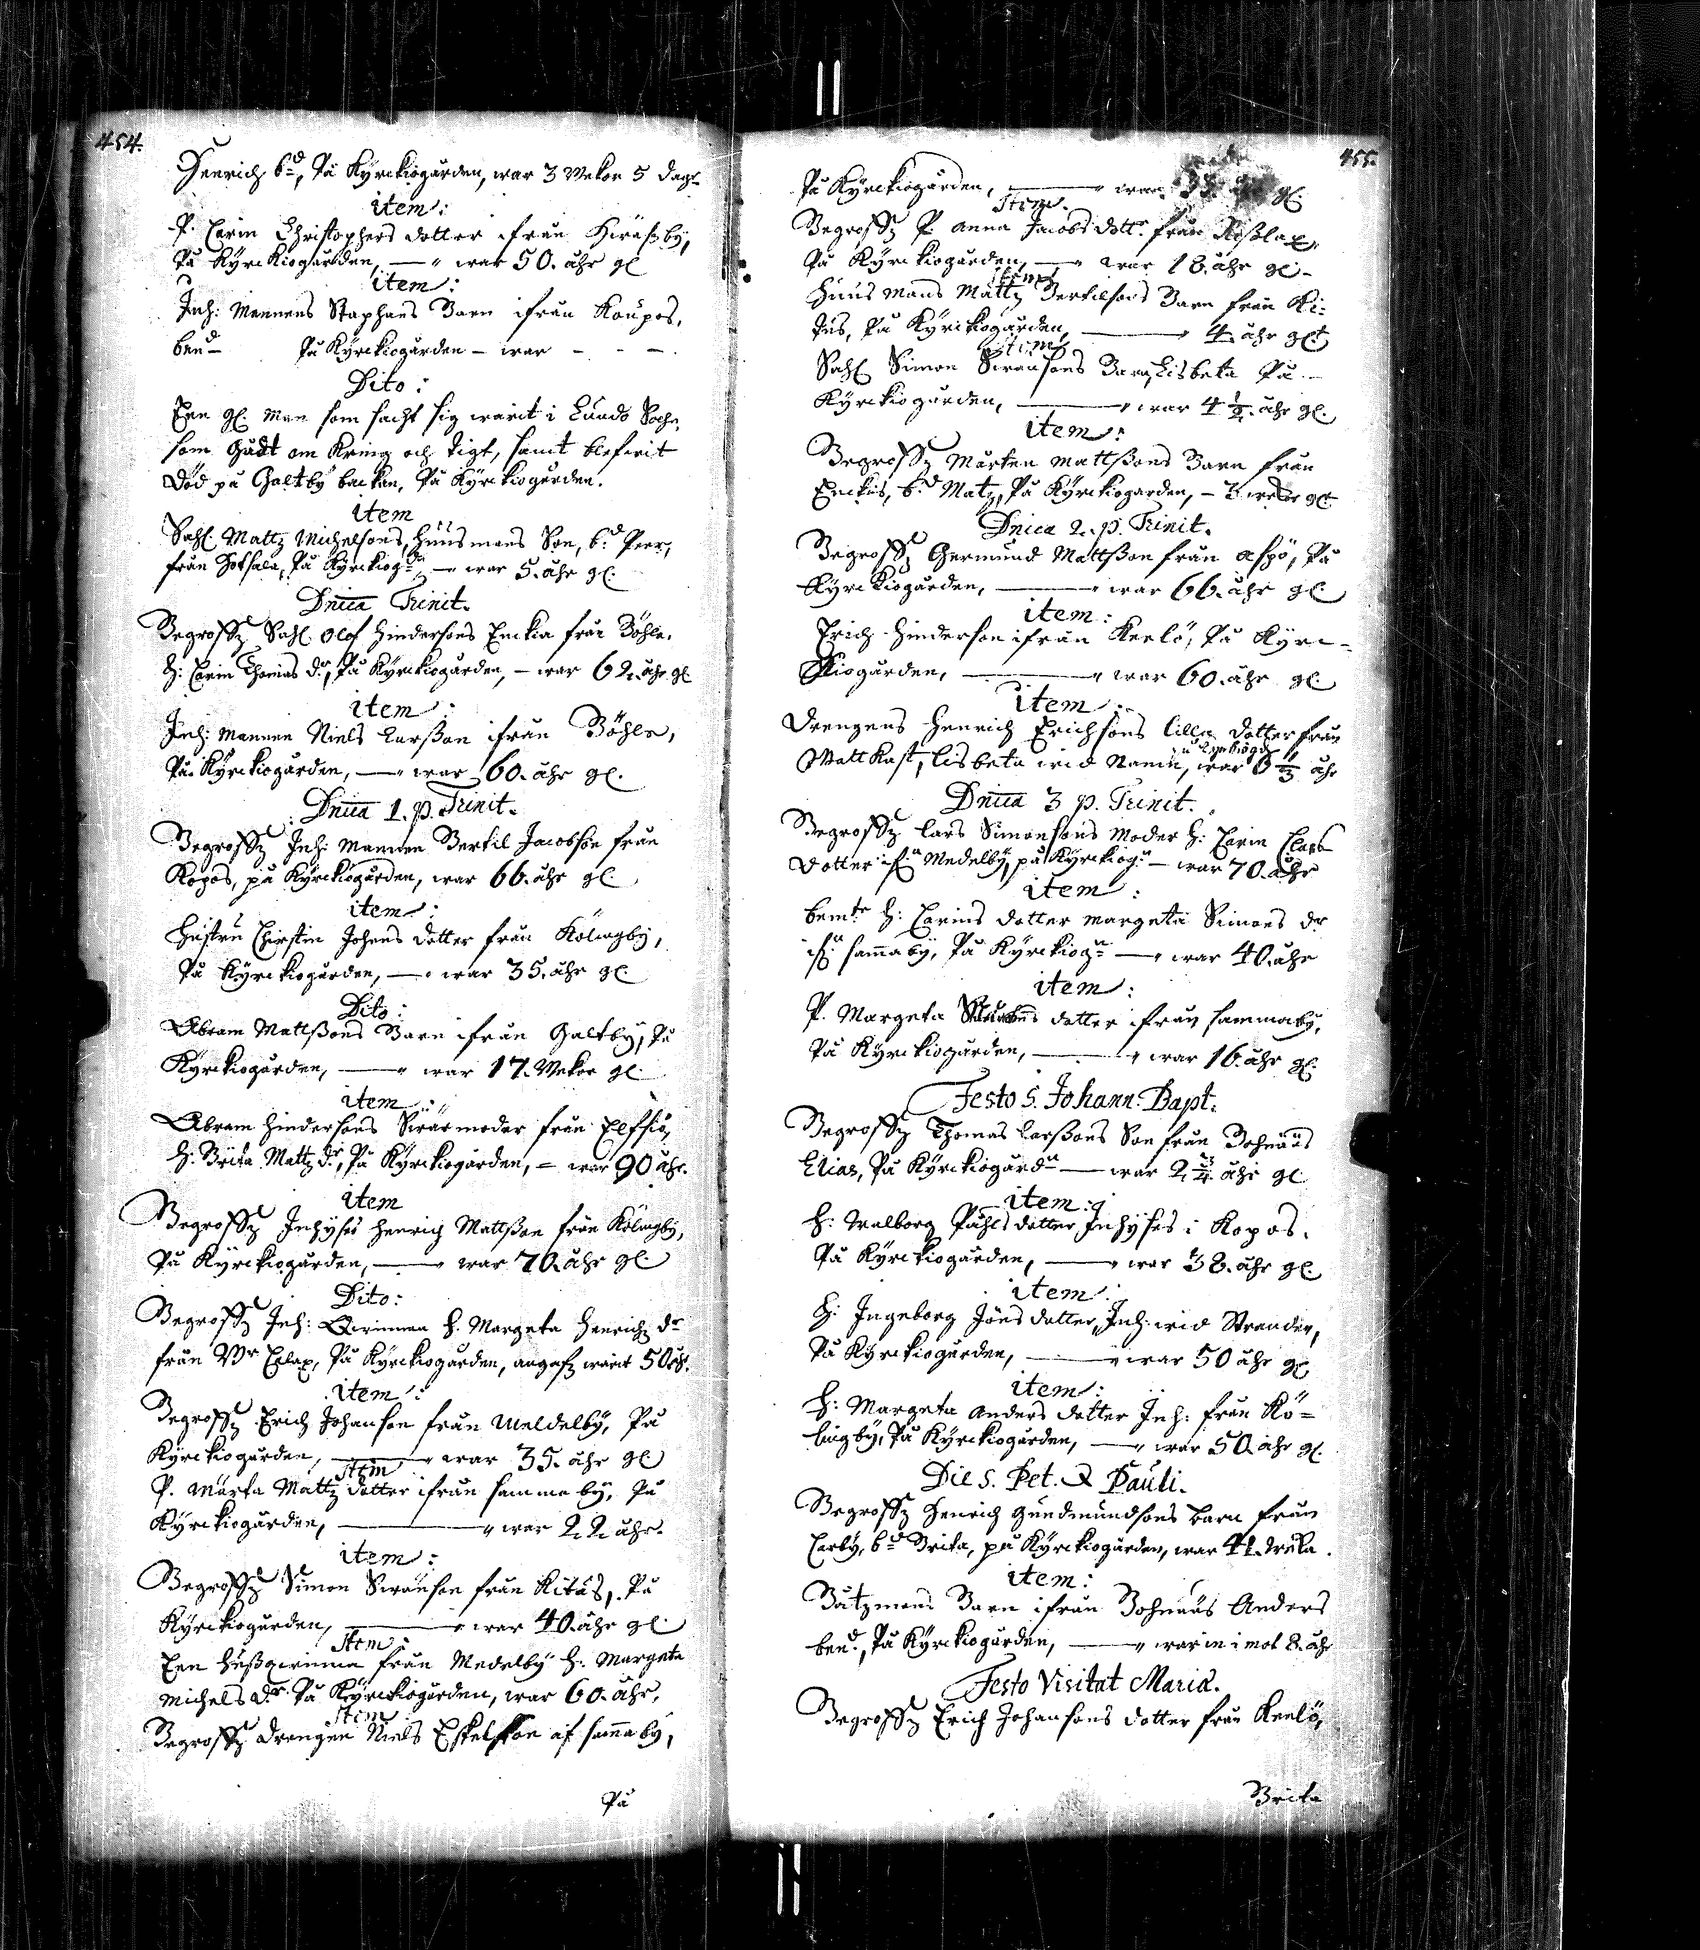 454.
Henrich b:d, På Kyrckiogården, war 3 Wekor 5 dag:r
item:
P. Carin Christophers dotter ifrån
På Kyrckiogården, — war 50. åhr gl
item:
Inh: Mannens Staphans Barn ifrån Koupos,
ben:d På Kyrckiogården – war - - -
Dito:
Een gl. Man som sacht sig warit i Lundo Sochn,
som gådt om kring och tigt, samt blefwit
död på Galtby backan, På Kyrckiogården.
item
Sahl. Mattz Michelsons, Huusmans Son, b:d Peer,
från På Kyrckiog:n — war 5. åhr gl.
Dnica Trinit.
Begrofz Sahl. Olof Hindersons Enckia från Böhle,
H: Carin Thomas d:r, På Kyrckiogården, – war 62. åhr gl
item:
Inh: Mannen Niels Larsson ifrån Böhle,
På Kyrckiogården, — war 60. åhr gl.
Dnica 1. p. Trinit.
Begrofz Inh: Mannen Bertil Jacobson från
Kopos, på Kyrckiogården, war 66. åhr gl
item:
Hustru Chirstin Johans dotter från Kölingby,
På Kyrckiogården, — war 35. åhr gl.
Dito:
Abram Mattßons Barn ifrån Galtby, På
Kyrckiogården, — war 17. Wekor gl.
item:
Abram Hindersons Swärmoder från Elfsiö,
H: Brita Mattz d:r, På Kyrckiogården, – war 90 åhr.
item
Begrofz Inhyses Henrich Mattßon från Kölingby,
På Kyrckiogården, — war 70. åhr gl.
Dito:
Begrofz Inh: Qwinnan H. Margeta Henrichz d:r
från Öfr Cålax, På Kyrckiogården, warit 50 åhr.
item:
Begrofz Erich Johanson från Medelby, På
Kyrckiogården, — war 35. åhr gl
Item
P. Marta Mattz dotter ifrån samma by, På
Kyrckiogården, — war 22 åhr.
item:
Begrofz Simon Swänson från Kitus, På
Kyrckiogården, — war 40. åhr gl.
Item:
Een Hußqwinna från Medelby H: Margeta
Michels d:r På Kyrckiogården, war 60. åhr,
Item
Begrofz drengen Niels Eskelsson af sama by,
På
455.
På Kyrckiogården, — war gl.
Item.
Begrofz P. Anna Jacobs dott:r från Roslax,
På Kyrckiogården, — war 18. åhr gl-
Item
Huus Mans Mattz Bertilsons Barn från Ki-
tus, På Kyrckiogården, — 4 åhr gl:t
Item
Sahl Simon Swänsons Barn, Lisbeta På
Kyrckiogården, — war 4 ½. åhr gl.
item:
Begrofz Mårten Mattßons Barn från
Enckus, b:d Matz, På Kyrckiogården, – 3 wekor gl:t
Dnica 2. p. Trinit.
Begrofz Germund Mattßon från Aspö, På
Kyrckiogården, — war 66. åhr gl
item:
Erich Hinderson ifrån Keelö, På Kyrc-
kiogården, — war 60. åhr gl
item:
Drengens Henrich Erichsons lilla dotter från
Wattkast, Lisbeta wid Namn, på Kyrckiog: war åhr
Dnica 3 p. Trinit.
Begrofz Lars Simonsons Moder H: Carin Claes
dotter if:n Medelby, på Kyrckiog:n — war 70. åhr
item:
bem:te H: Carins dotter Margeta Simons d:r
if:n samaby, På Kyrckiog:n — war 40. åhr
item:
P. Margeta dotter ifrån sammaby,
På Kyrckiogården, — war 16. åhr gl.
Festo S. Johann: Bapt:
Begrofz Thomas Larßons Son från Bohnäs
Elias, På Kyrckiogård:n — war 2 ¾. åhr gl
item:
H: Walborg Påhls dotter Inhyses i Kopos.
På Kyrckiogården, — war 38. åhr gl.
item:
H: Ingeborg Jöns dotter, Inh: wid Stranden,
På Kyrckiogården, — war 50 åhr gl
item:
H: Margeta Anders dotter Inh: från Kö-
lingby, På Kyrckiogården, — war 50. åhr gl.
Die S. Pet. & Pauli.
Begrofz Henrich Gundmundsons barn från
Carby, b:d Brita, på Kyrckiogården, war wecka.
item:
Båtzmans Barn ifrån Bohnäs Anders
ben:d, På Kyrckiogården, — war in i mot 8. åhr
Festo Visitat Mariæ.
Begrofz Erich Johansons dotter från Keelö,
Brita